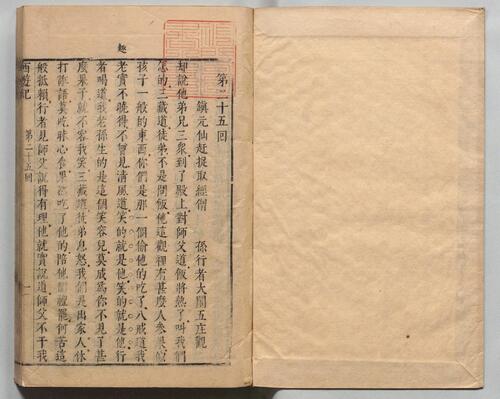 第二十五回
鎮元仙赶捉取經僧　孫行者大鬧五庄觀
却說他弟兄三衆到了殿上對師父道飯將熟了叫我們
怎的三藏道徒弟不是問飯他這觀裡有甚麽人參果似
孩子一般的東西你們是那一個偷他的吃了八戒道我
老實不曉得不曾見清風道笑的就是他笑的就是他行
者喝道我老孫生的是這個笑容兒莫成爲你不見了甚
麽果子就不容我笑三藏道徒弟息怒我們是出家人休
打誑語莫吃昧心食果然吃了他的陪他個禮罷何苦這
般抵賴行者見師父說得有理他就實說道師父不干我
西遊記　第二十五回　一
趣